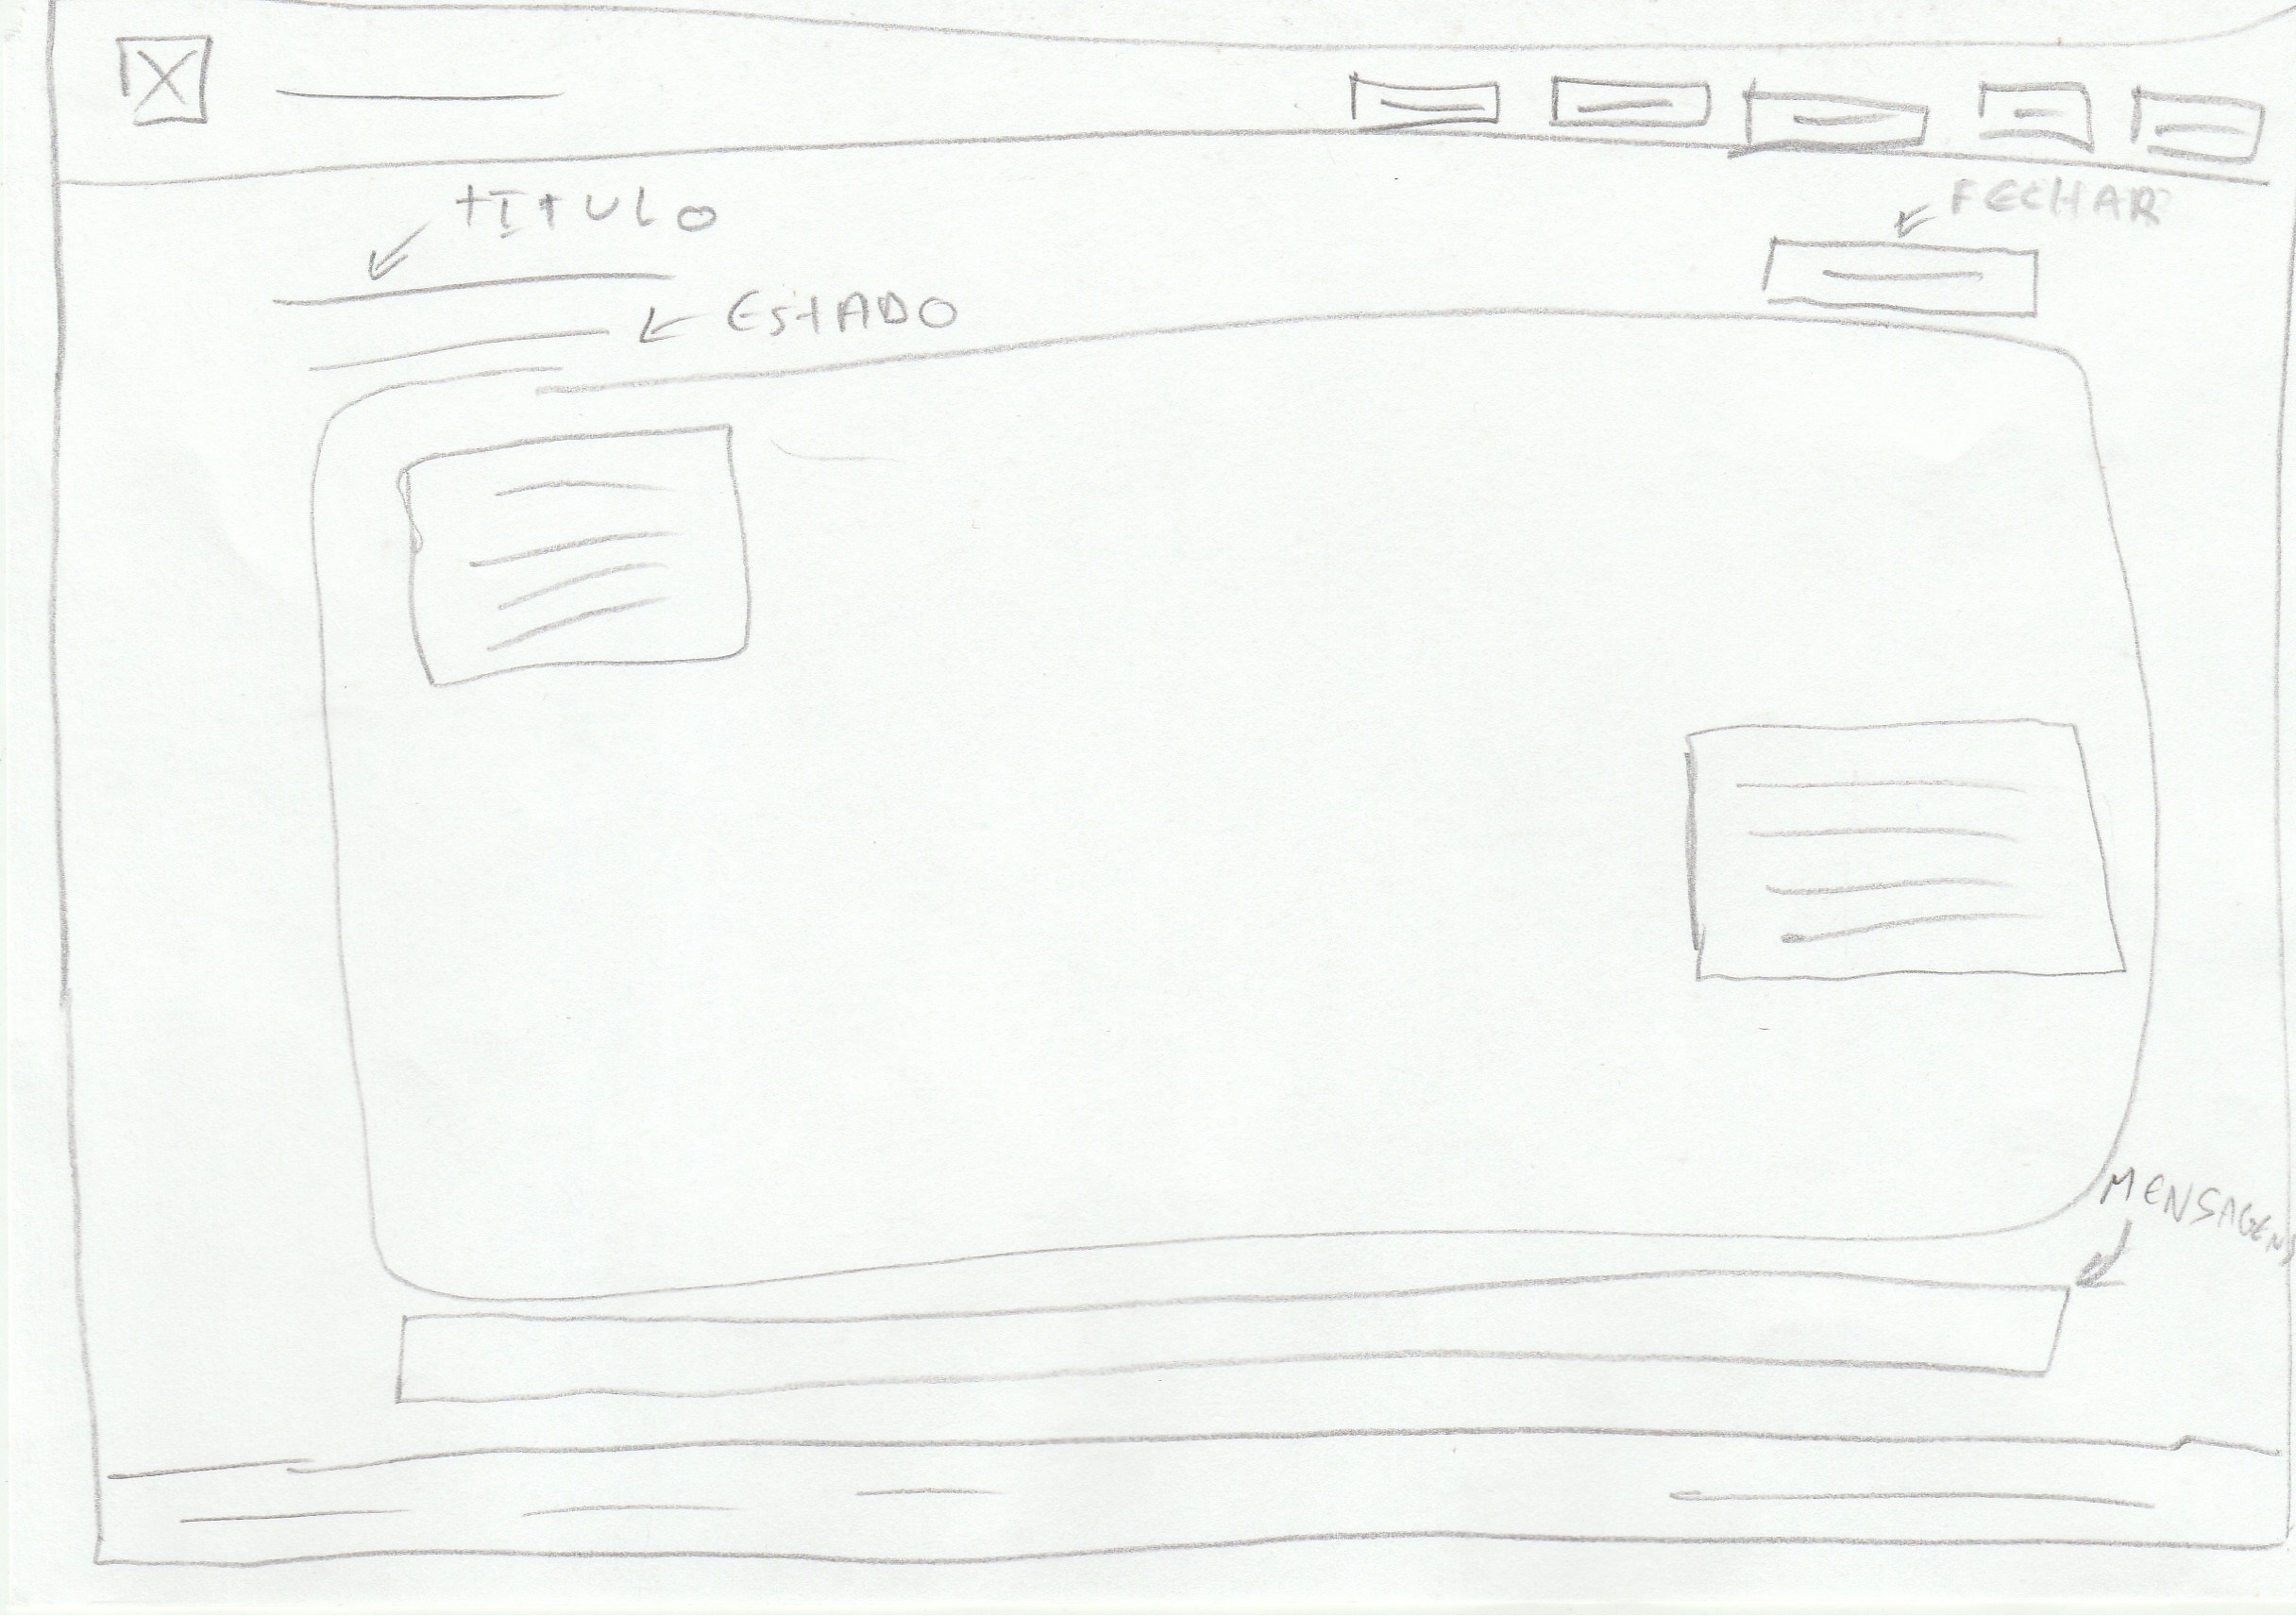 TITULO
FECHAR
ESTADO
MENSAGENS